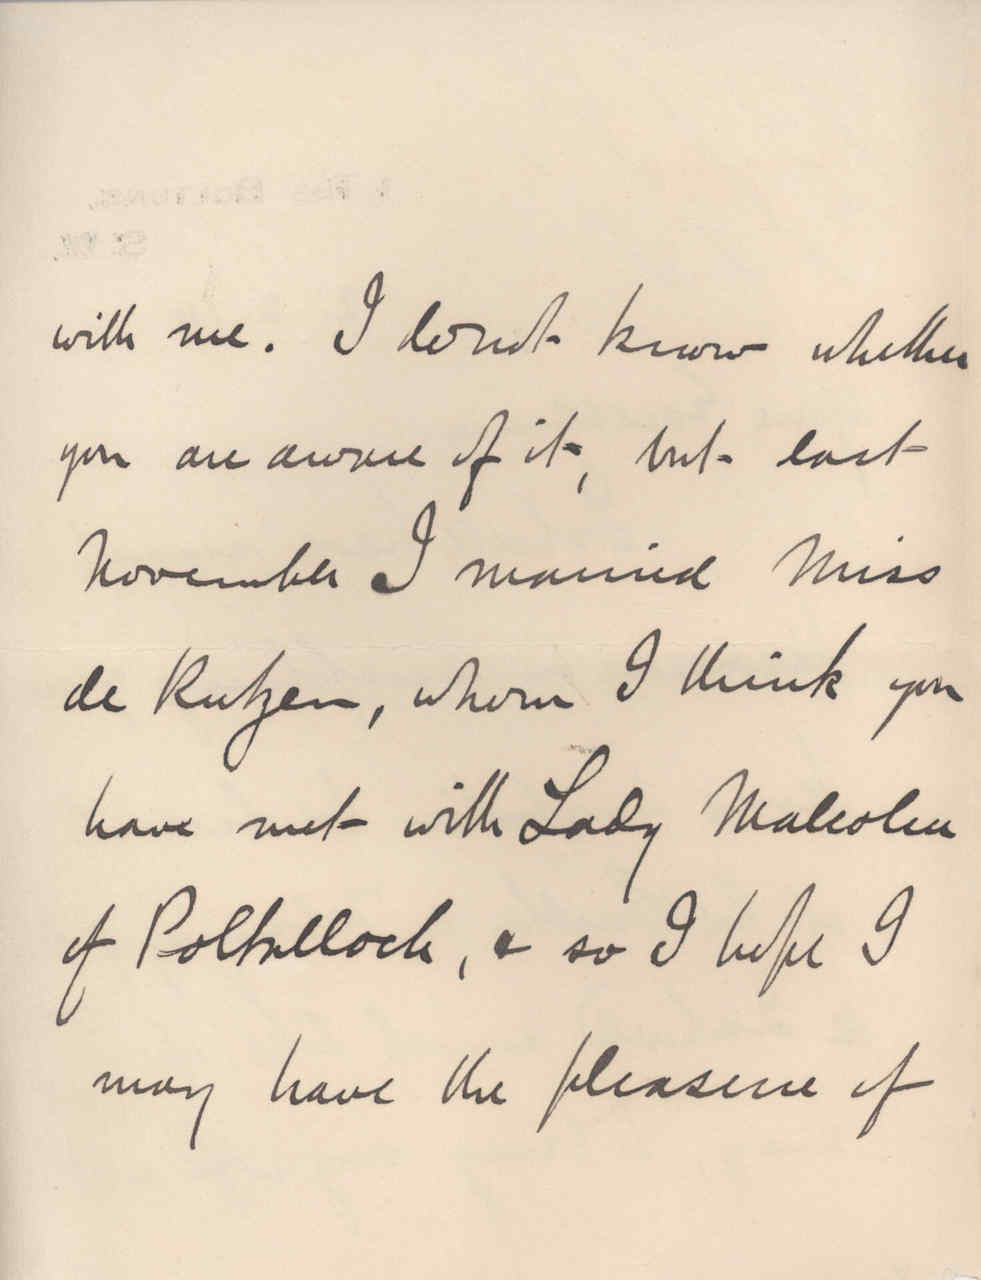 with me. I do not know whether
you are aware of it, but last
November I married Miss
de Rutzen, whom I think you
have met with Lady Malcolm
of Poltalloch, & so I hope I
may have the pleasure of